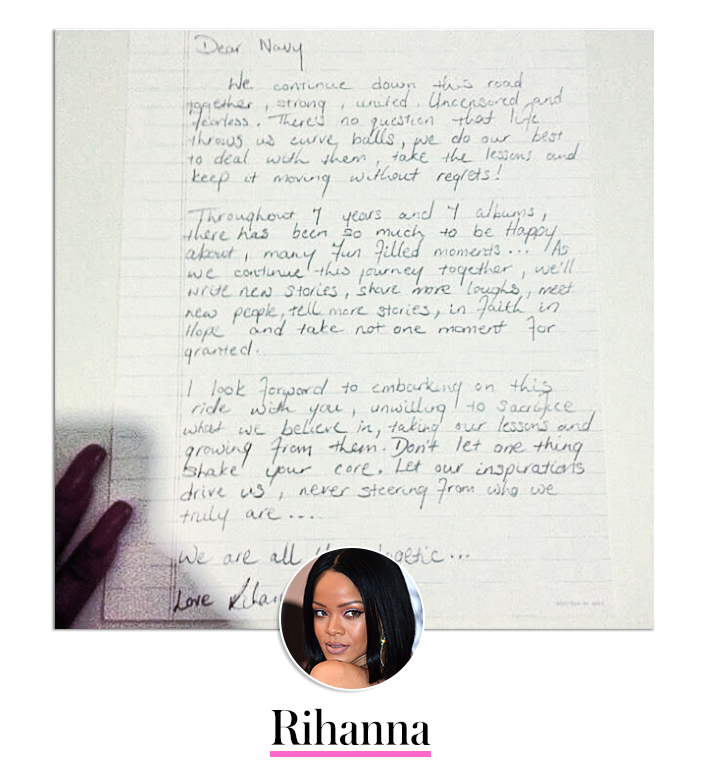 Dear Navy
We continue down this road
together, strong, united. Uncensored and
fearless. There's no question that life
throws us curve balls, we do our best
to deal with them, take the lessons and
keep it moving without regrets!
Throughout 7 years and 7 albums,
there has been so much to be Happy
about, many fun filled moments... As
we continue this journey together, we'll
write new stories, share more laughs, meet
new people, tell more stories, in faith in
Hope and take not one moment for
granted.
I look forward to embarking on this
ride with you, unwilling to sacrifice
what we believe in, taking our lessons and
growing from them. Don't let one thing
shake your core. Let our inspirations
drive us, never steering from who we
truly are...
We are all
Love
Rihanna